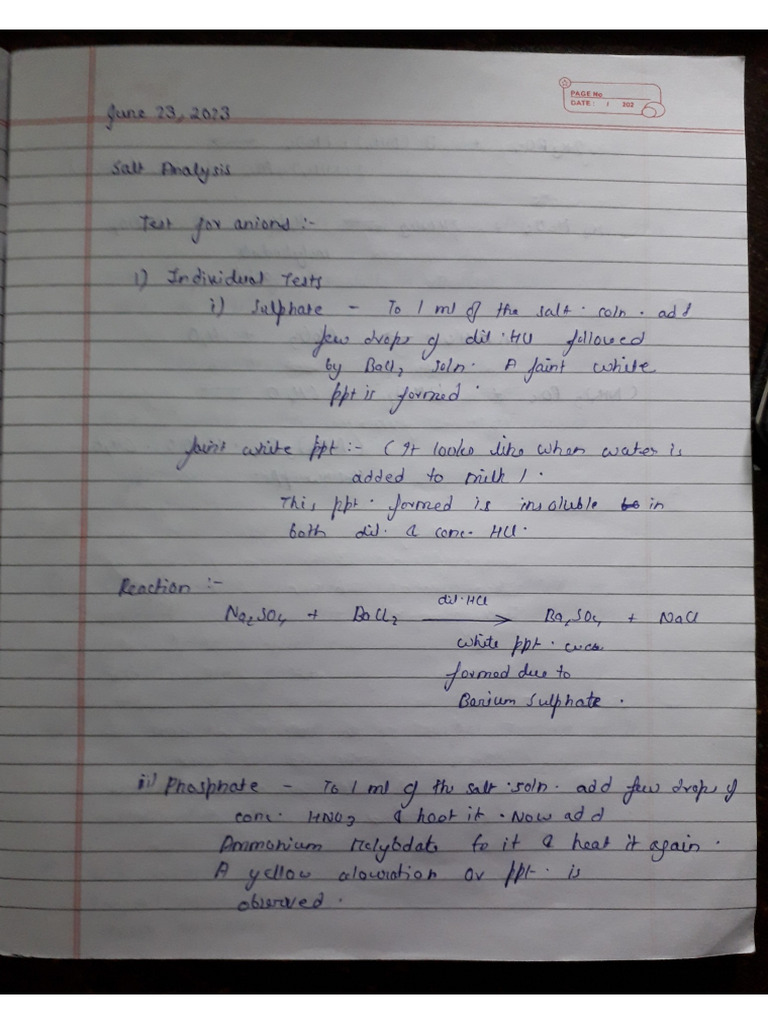 PAGE No.
DATE: / 202
June 23, 2023
Salt Analysis
Test for anions :-
1) Individual Tests
i) Sulphate - To 1 ml of the salt . coln . add
few drops of dil . HCl followed
by BaCl2 soln . A faint white
ppt is formed .
faint white ppt :- ( It looks like when water is
added to milk ) .
This ppt . formed is insoluble in
both dil . & conc . HCl .
Reaction :-
dil . HCl
Na2SO4 + BaCl2 → Ba2SO4 + NaCl
white ppt . was
formed due to
Barium Sulphate .
ii) Phosphate - To 1 ml of the salt . soln . add few drops of
conc . HNO3 & heat it . Now add
Ammonium Molybdate to it & heat it again .
A yellow colouration or ppt . is
observed .